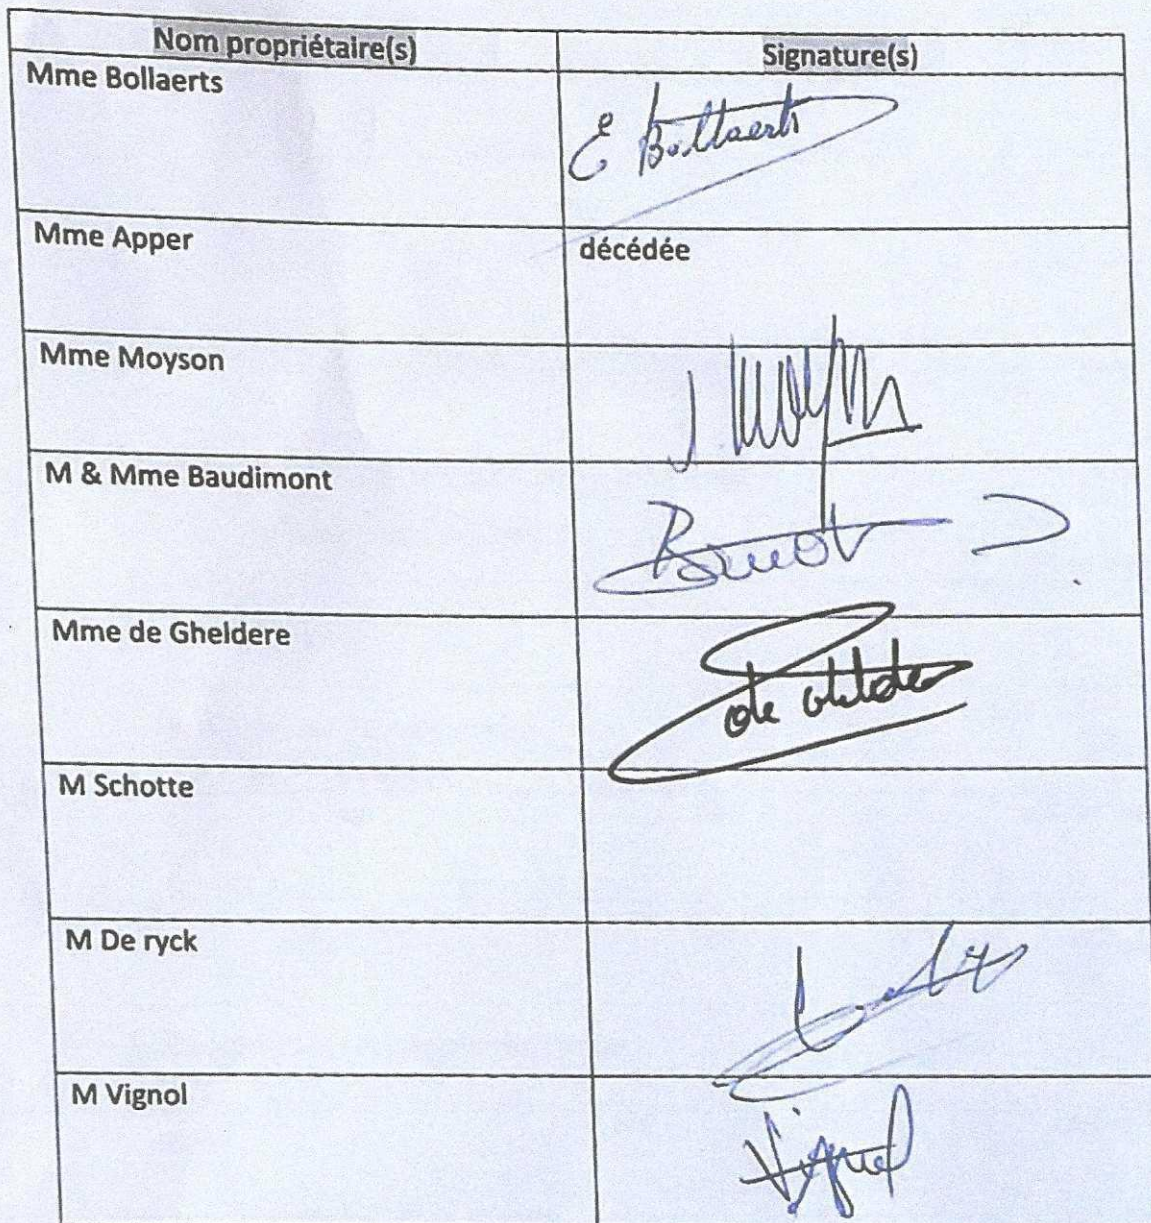 Nom propriétaire(s) Signature(s)
Mme Bollaerts E Bollaerts
Mme Apper décédée
Mme Moyson J. Moyson
M & Mme Baudimont
Mme de Gheldere
M Schotte
M De ryck
M Vignol Vignol